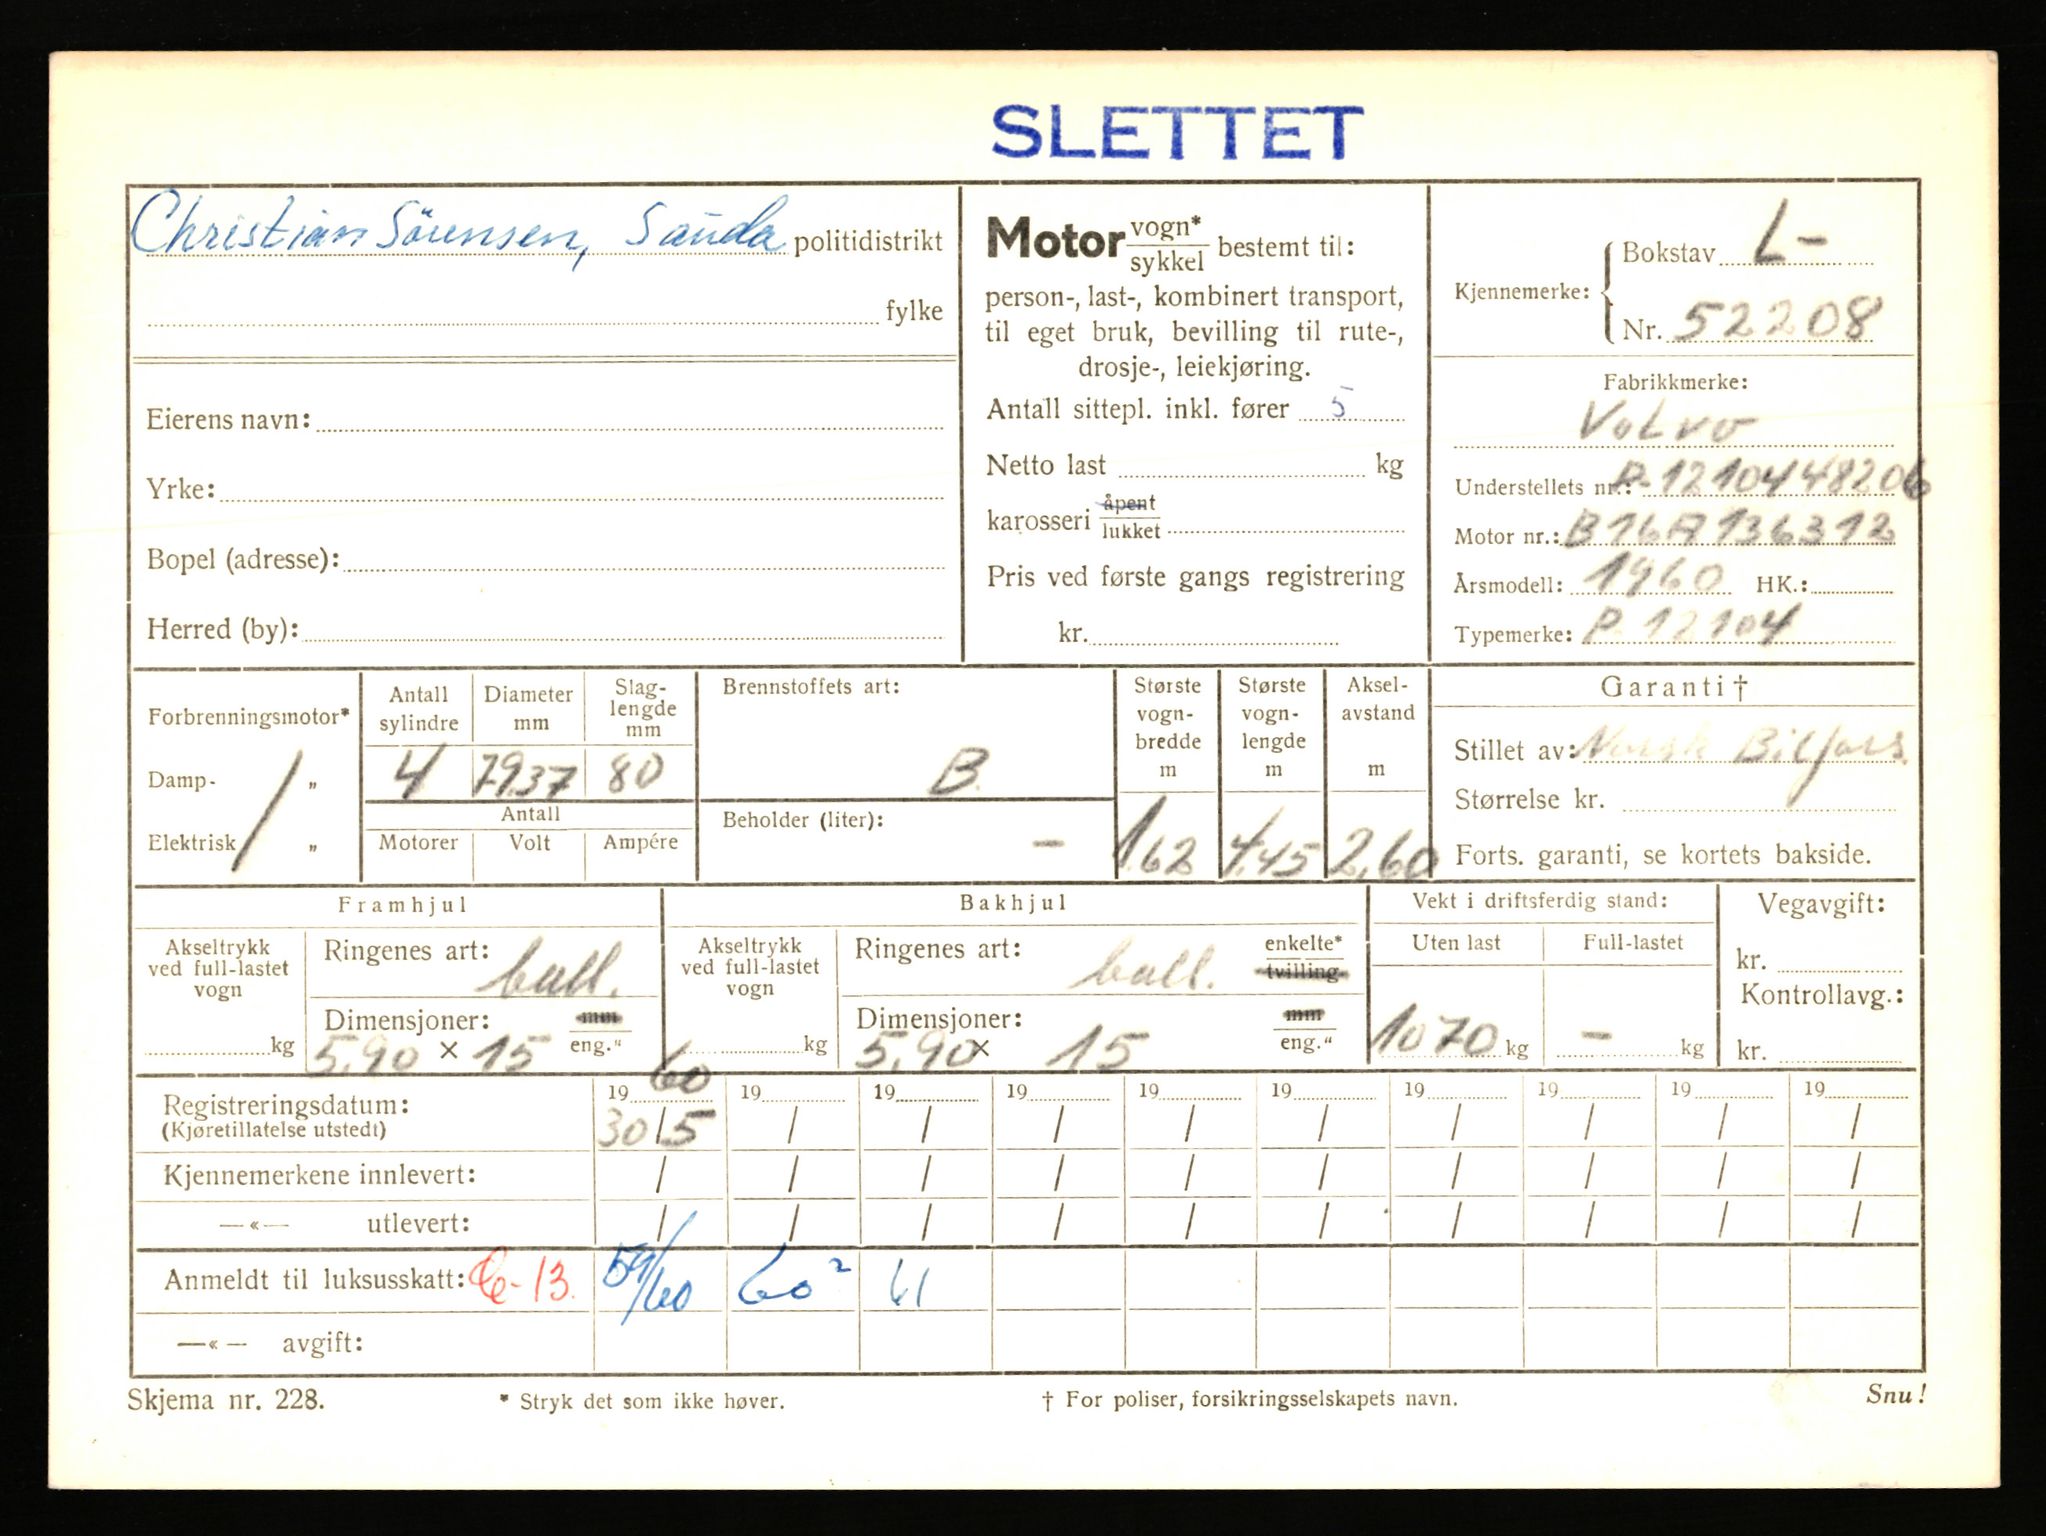 SLETTET
Christian Sörensen, Sauda politidistrikt
fylke
Eierens navn:
Yrke:
Bopel (adresse):
Herred (by):
Motor vogn* / sykkel bestemt til:
person-, last-, kombinert transport,
til eget bruk, bevilling til rute-,
drosje-, leiekjøring.
Antall sittepl. inkl. fører 5
Netto last kg
karosseri åpent / lukket
Pris ved første gangs registrering
kr.
Kjennemerke: Bokstav L-
Nr. 52208
Fabrikkmerke:
Volvo
Understellets nr.: P-1210448206
Motor nr.: B16A136312
Årsmodell: 1960 HK.:
Typemerke: P 12104
Forbrenningsmotor*
Damp- „
Elektrisk „
Antall sylindre 4
Diameter mm 79.37
Slag-lengde mm 80
Antall
Motorer Volt Ampére
Brennstoffets art:
B.
Beholder (liter): -
Største vogn-bredde m 1.62
Største vogn-lengde m 4.45
Aksel-avstand m 2,60
Garanti †
Stillet av: Norsk Bilfors.
Størrelse kr.
Forts. garanti, se kortets bakside.
Framhjul
Akseltrykk ved full-lastet vogn
kg
Ringenes art: ball.
Dimensjoner: mm
5,90 × 15 eng."
Bakhjul
Akseltrykk ved full-lastet vogn
kg
Ringenes art: ball. enkelte* / tvilling
Dimensjoner: mm
5,90 × 15 eng."
Vekt i driftsferdig stand:
Uten last Full-lastet
1070 kg - kg
Vegavgift:
kr.
Kontrollavg.:
kr.
Registreringsdatum: 19 60 19 19 19 19 19 19 19 19 19
(Kjøretillatelse utstedt) 30/5 / / / / / / / / /
Kjennemerkene innlevert: / / / / / / / / / /
—«— utlevert: / / / / / / / / / /
Anmeldt til luksusskatt: 59/60 60² 61
—«— avgift:
Skjema nr. 228. * Stryk det som ikke høver. † For poliser, forsikringsselskapets navn. Snu!